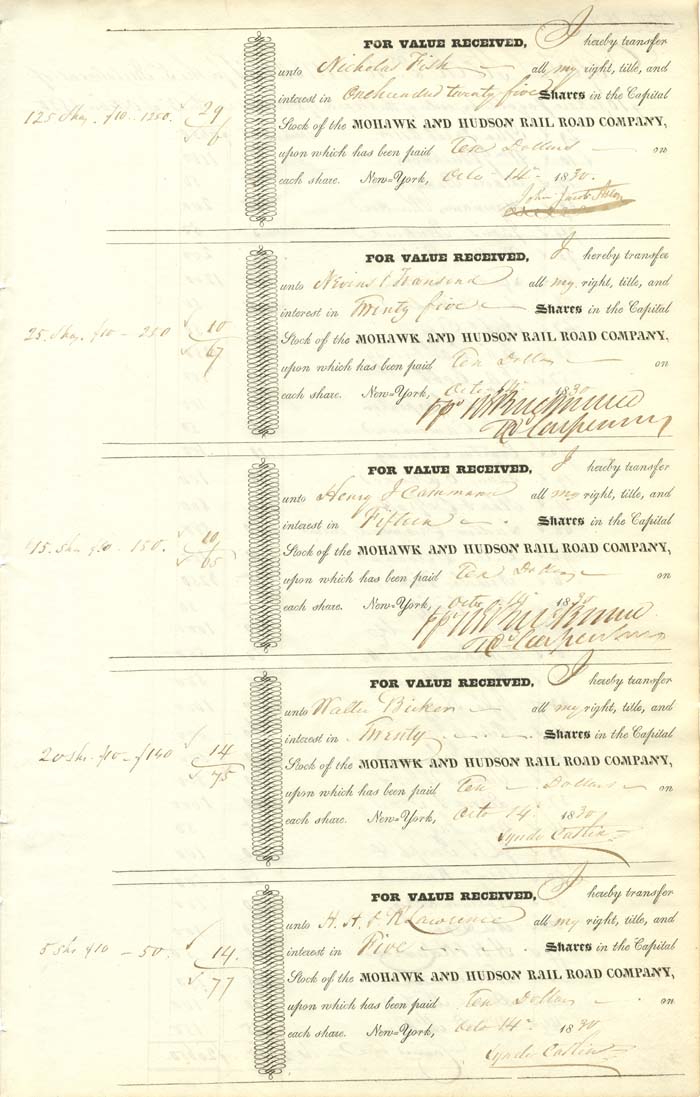 FOR VALUE RECEIVED, I hereby transfer
unto Nicholas Fish all my right, title, and
interest in One hundred twenty five Shares in the Capital
125 Shs. $10 - 1250. 29
6
Stock of the MOHAWK AND HUDSON RAIL ROAD COMPANY,
upon which has been paid Ten Dollars on
each share. New-York, Octo 14th 1830.
John Jacob Astor
FOR VALUE RECEIVED, I hereby transfer
unto Nevins & Townsend all my right, title, and
interest in Twenty five Shares in the Capital
25 Shs. $10 - 250 10
67
Stock of the MOHAWK AND HUDSON RAIL ROAD COMPANY,
upon which has been paid Ten Dollars on
each share. New-York, Octo 14th 1830
Carpenter
FOR VALUE RECEIVED, I hereby transfer
unto Henry J Cammann all my right, title, and
interest in Fifteen Shares in the Capital
15 Shs $10 - 150. 10
65
Stock of the MOHAWK AND HUDSON RAIL ROAD COMPANY,
upon which has been paid Ten Dollars on
each share. New-York, Octo 14th 1830
Carpenter
FOR VALUE RECEIVED, I hereby transfer
unto Walter Bicker all my right, title, and
interest in Twenty Shares in the Capital
20 Shs. $10 - 14
75
Stock of the MOHAWK AND HUDSON RAIL ROAD COMPANY,
upon which has been paid Ten Dollars on
each share. New-York, Octo 14th 1830
Lynde Catlin
FOR VALUE RECEIVED, I hereby transfer
unto A. H. & R Lawrence all my right, title, and
interest in Five Shares in the Capital
5 Shs $10 - 50. 14.
77
Stock of the MOHAWK AND HUDSON RAIL ROAD COMPANY,
upon which has been paid Ten Dollars on
each share. New-York, Octo 14th 1830
Lynde Catlin